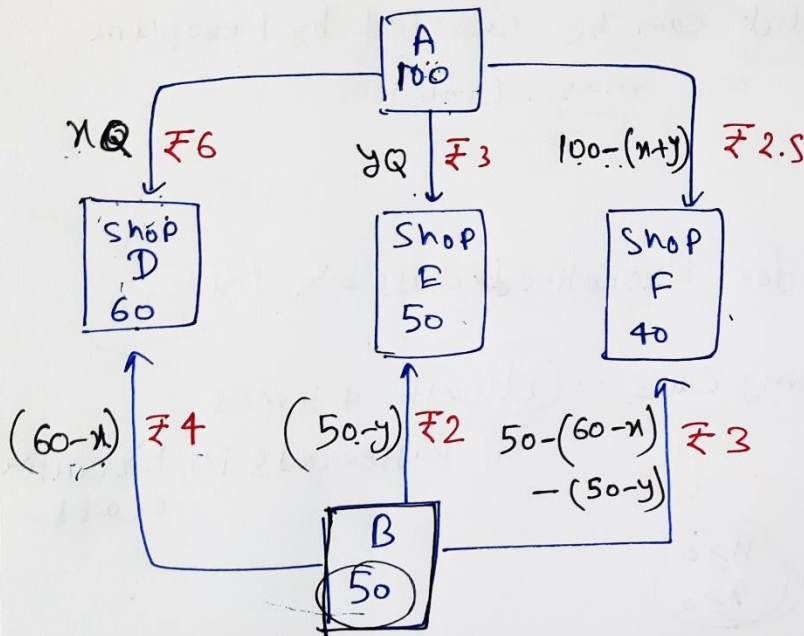 A
100
xQ
₹6
yQ
₹3
100-(x+y)
₹2.5
Shop
D
60
Shop
E
50
Shop
F
40
(60-x)
₹4
(50-y)
₹2
50-(60-x)
-(50-y)
₹3
B
50